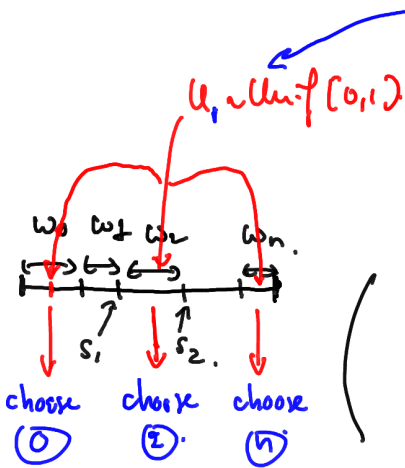 U₁ ~ Unif (0,1).
ω₀ ω₁ ω₂ ωₙ.
S₁ S₂.
choose choose choose
0 2. n.